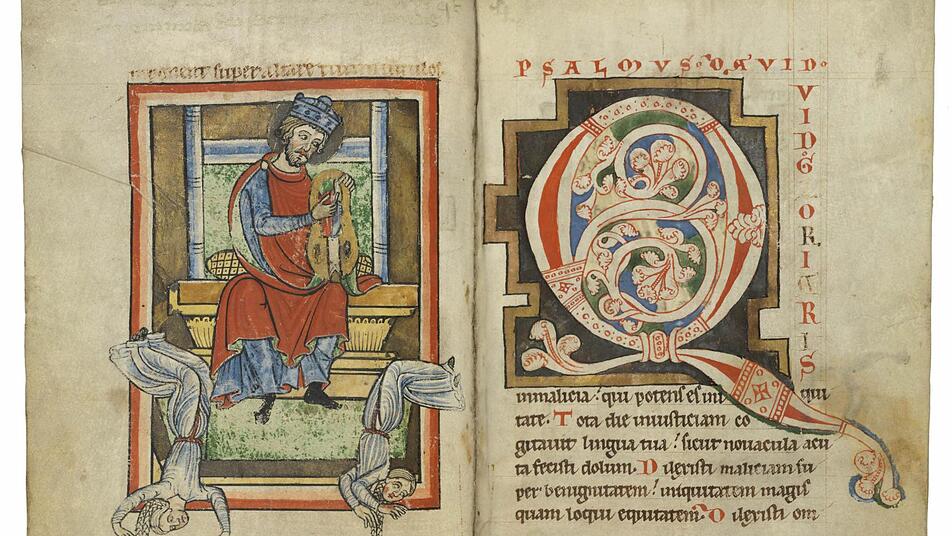 ponent super altare tuum vitulos
PSALMVS DAVID
Q
VID GLORIARIS
in malicia? qui potens es in iniqui
tate. Tota die iniusticiam co
gitauit lingua tua? sicut nouacula acu
ta fecisti dolum. Dilexisti maliciam su
per benignitatem? iniquitatem magis
quam loqui equitatem. Dilexisti om